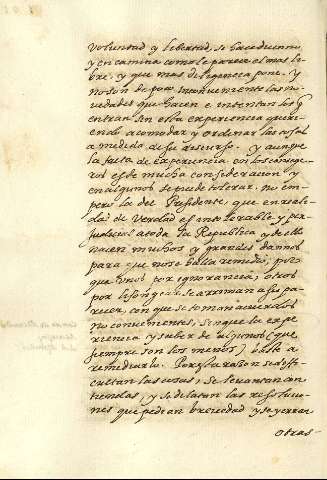 voluntad y libertad, se hace dueño
y encamina como le parece el mas li
bre. y que mas diligencia pone. y
no son de poco inconveniente las no
vedades que hacen e intentan los q
entran sin esta experiencia queri
endo acomodar y ordenar las cosas
a medida de su discurso. y aunque
la falta de experiencia en los conseje
ros es de mucha consideracion y
en algunos se puede tolerar, no em
pero la del Presidente, que en reali
dad de verdad es intolerable y per
judicial a toda la Republica y de ella
nacen muchos y grandes dannos
para que no se halla remedio, pues
que unos por ignorancia, otros
por lisongear se arriman a su pa
recer, con que se toman acuerdos
no convenientes, sin que la expe
riencia y saber de algunos (que
siempre son los menos) baste a
remediarlo. Por esta razon se difi
cultan las cosas, se levantan con
tiendas, y se dilatan las resolucio
nes que pedian brevedad y se yerran
otras-